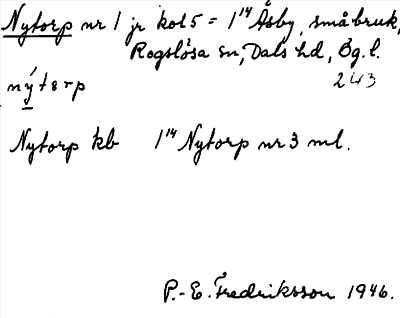 Nytorp nr 1 jr kol 5 = 1¹⁴ Åsby, småbruk,
Rogslösa sn, Dals hd, Ög. l.
243
nýtɛrp
Nytorp kb 1¹⁴ Nytorp nr 3 ml.
P.-E. Fredriksson 1946.